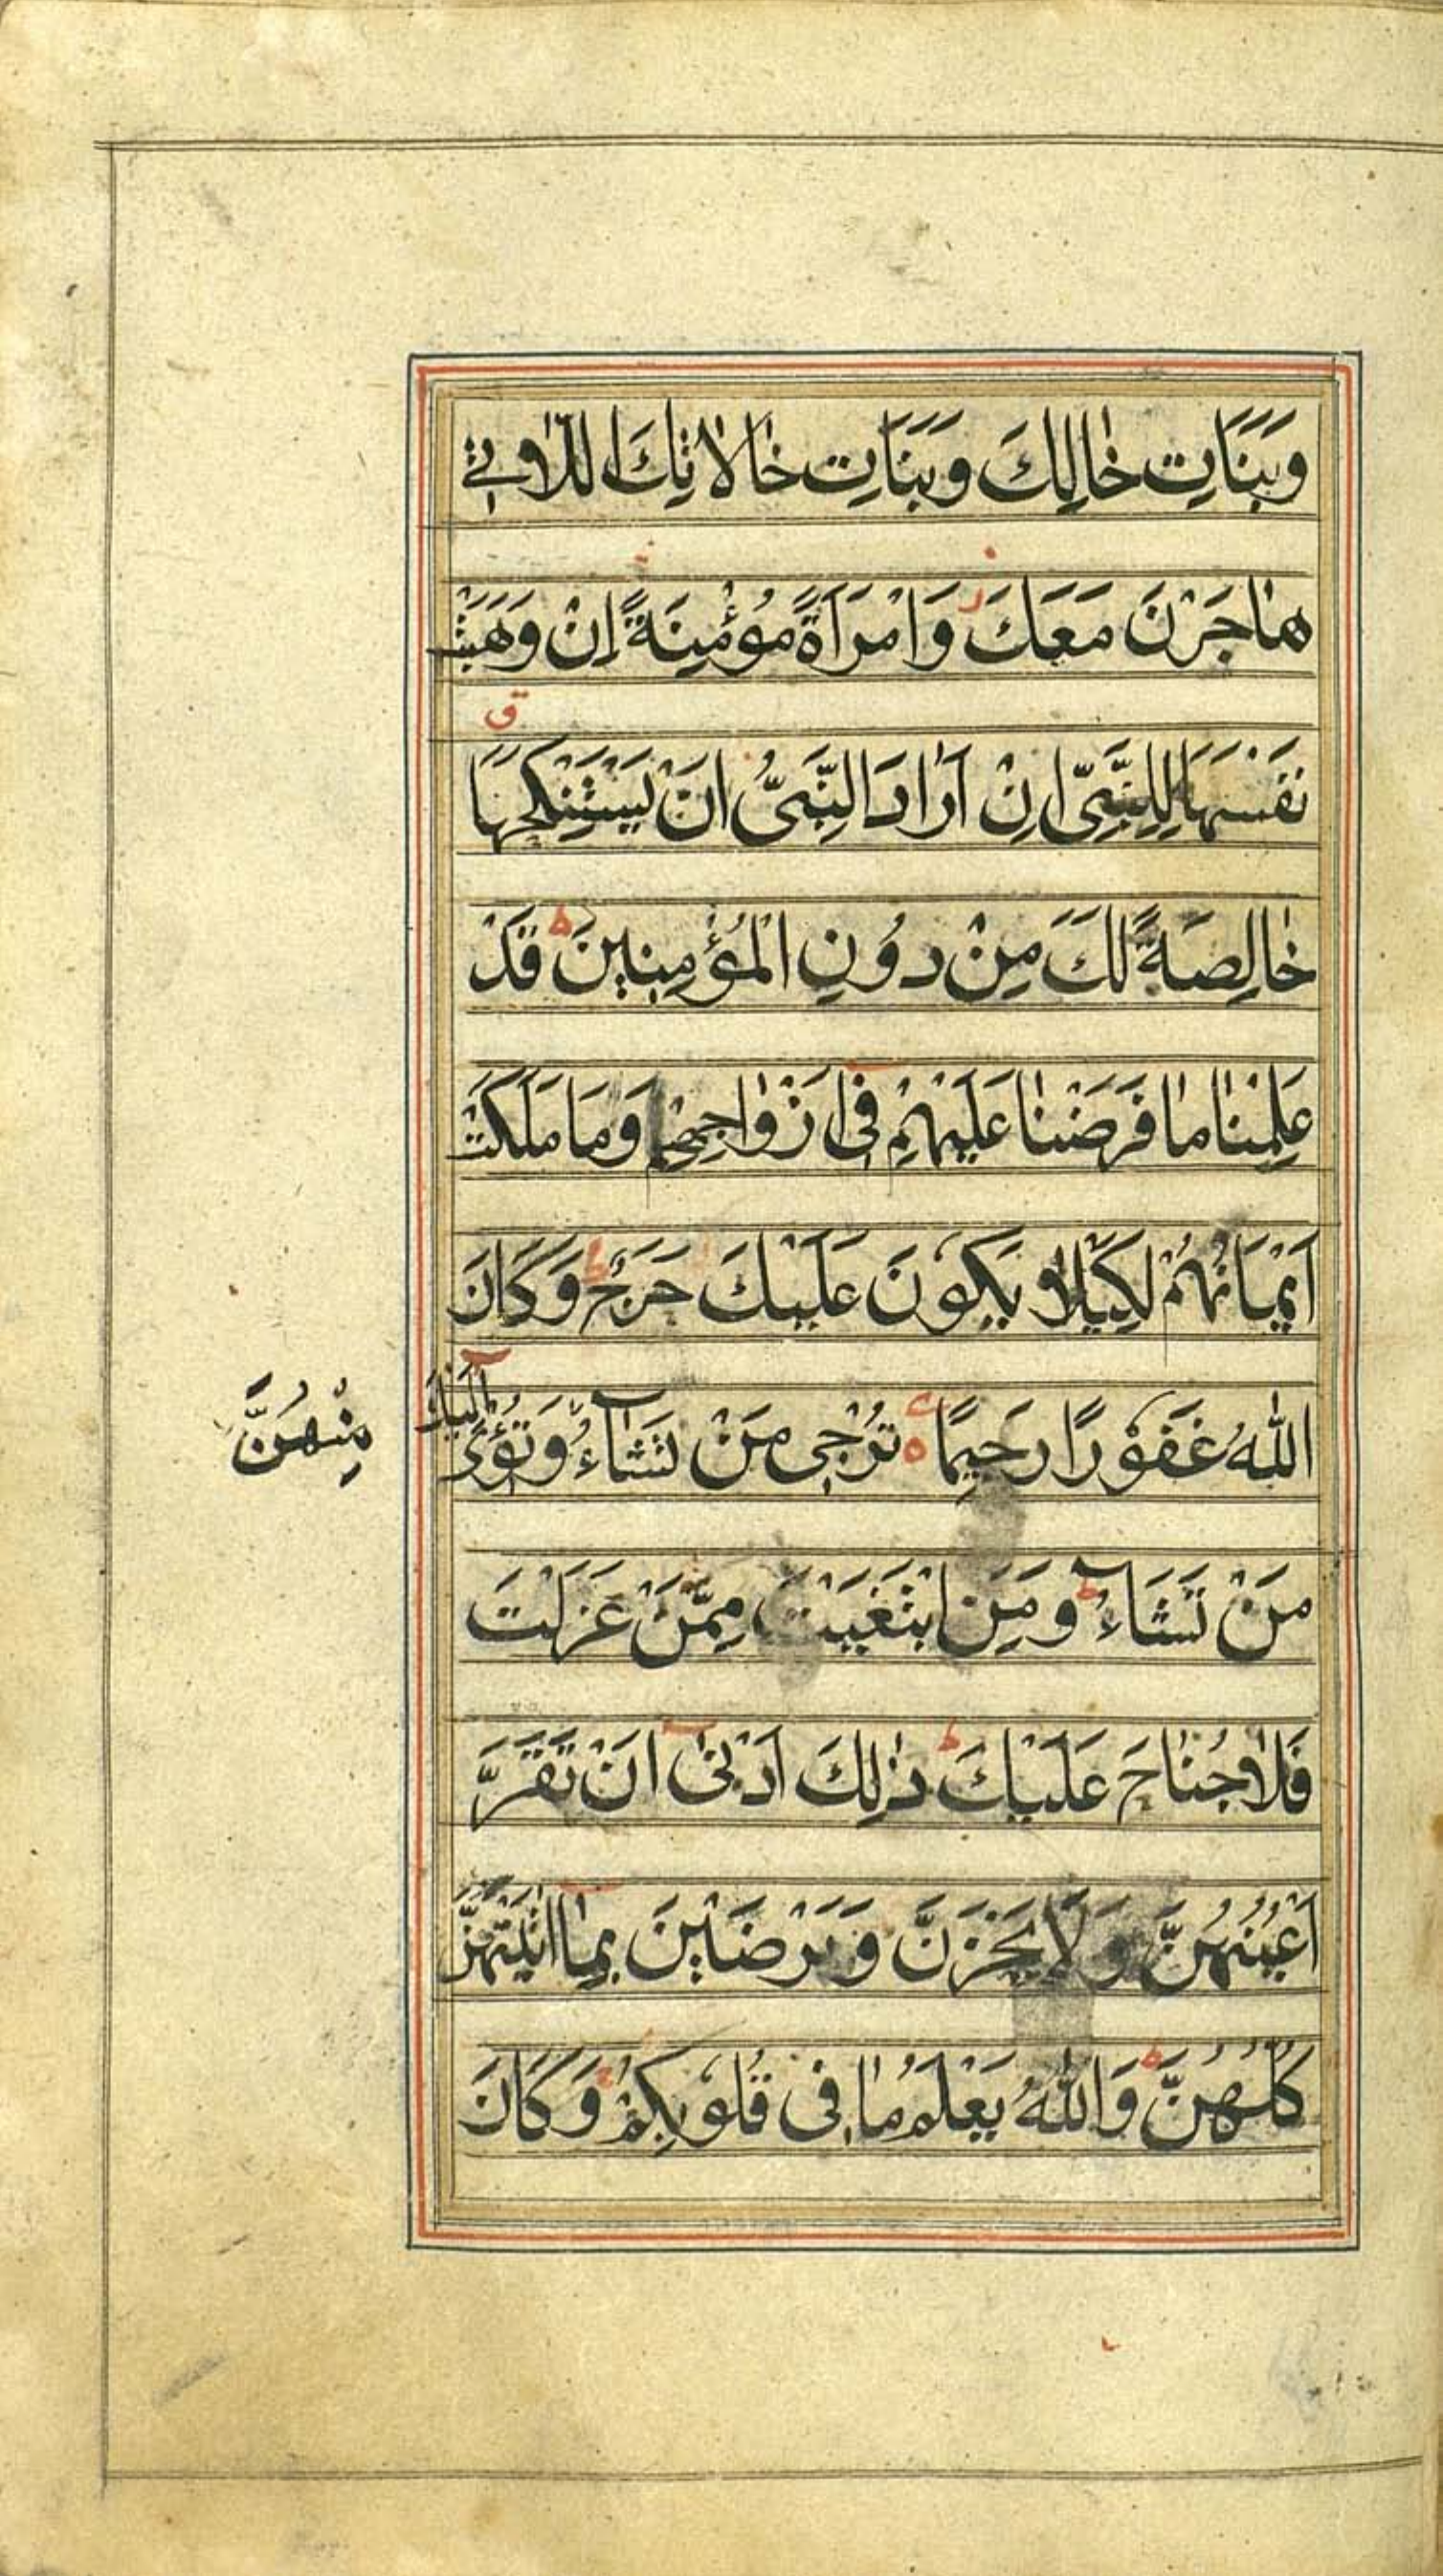 وَبَنَاتِ خَالِكَ وَبَنَاتِ خَالَاتِكَ اللَّاتِي
هَاجَرْنَ مَعَكَ وَامْرَأَةً مُؤْمِنَةً إِنْ وَهَبَتْ
نَفْسَهَا لِلنَّبِيِّ إِنْ أَرَادَ النَّبِيُّ أَنْ يَسْتَنْكِحَهَا
ق
خَالِصَةً لَكَ مِنْ دُونِ الْمُؤْمِنِينَ ط قَدْ
عَلِمْنَا مَا فَرَضْنَا عَلَيْهِمْ فِي أَزْوَاجِهِمْ وَمَا مَلَكَتْ
أَيْمَانُهُمْ لِكَيْلَا يَكُونَ عَلَيْكَ حَرَجٌ ط وَكَانَ
اللَّهُ غَفُورًا رَحِيمًا تُرْجِي مَنْ تَشَاءُ وَتُؤْوِي إِلَيْكَ
مِنْهُنَّ
مَنْ تَشَاءُ ط وَمَنِ ابْتَغَيْتَ مِمَّنْ عَزَلْتَ
فَلَا جُنَاحَ عَلَيْكَ ط ذَلِكَ أَدْنَى أَنْ تَقَرَّ
أَعْيُنُهُنَّ وَلَا يَحْزَنَّ وَيَرْضَيْنَ بِمَا آتَيْتَهُنَّ
كُلُّهُنَّ ط وَاللَّهُ يَعْلَمُ مَا فِي قُلُوبِكُمْ ط وَكَانَ